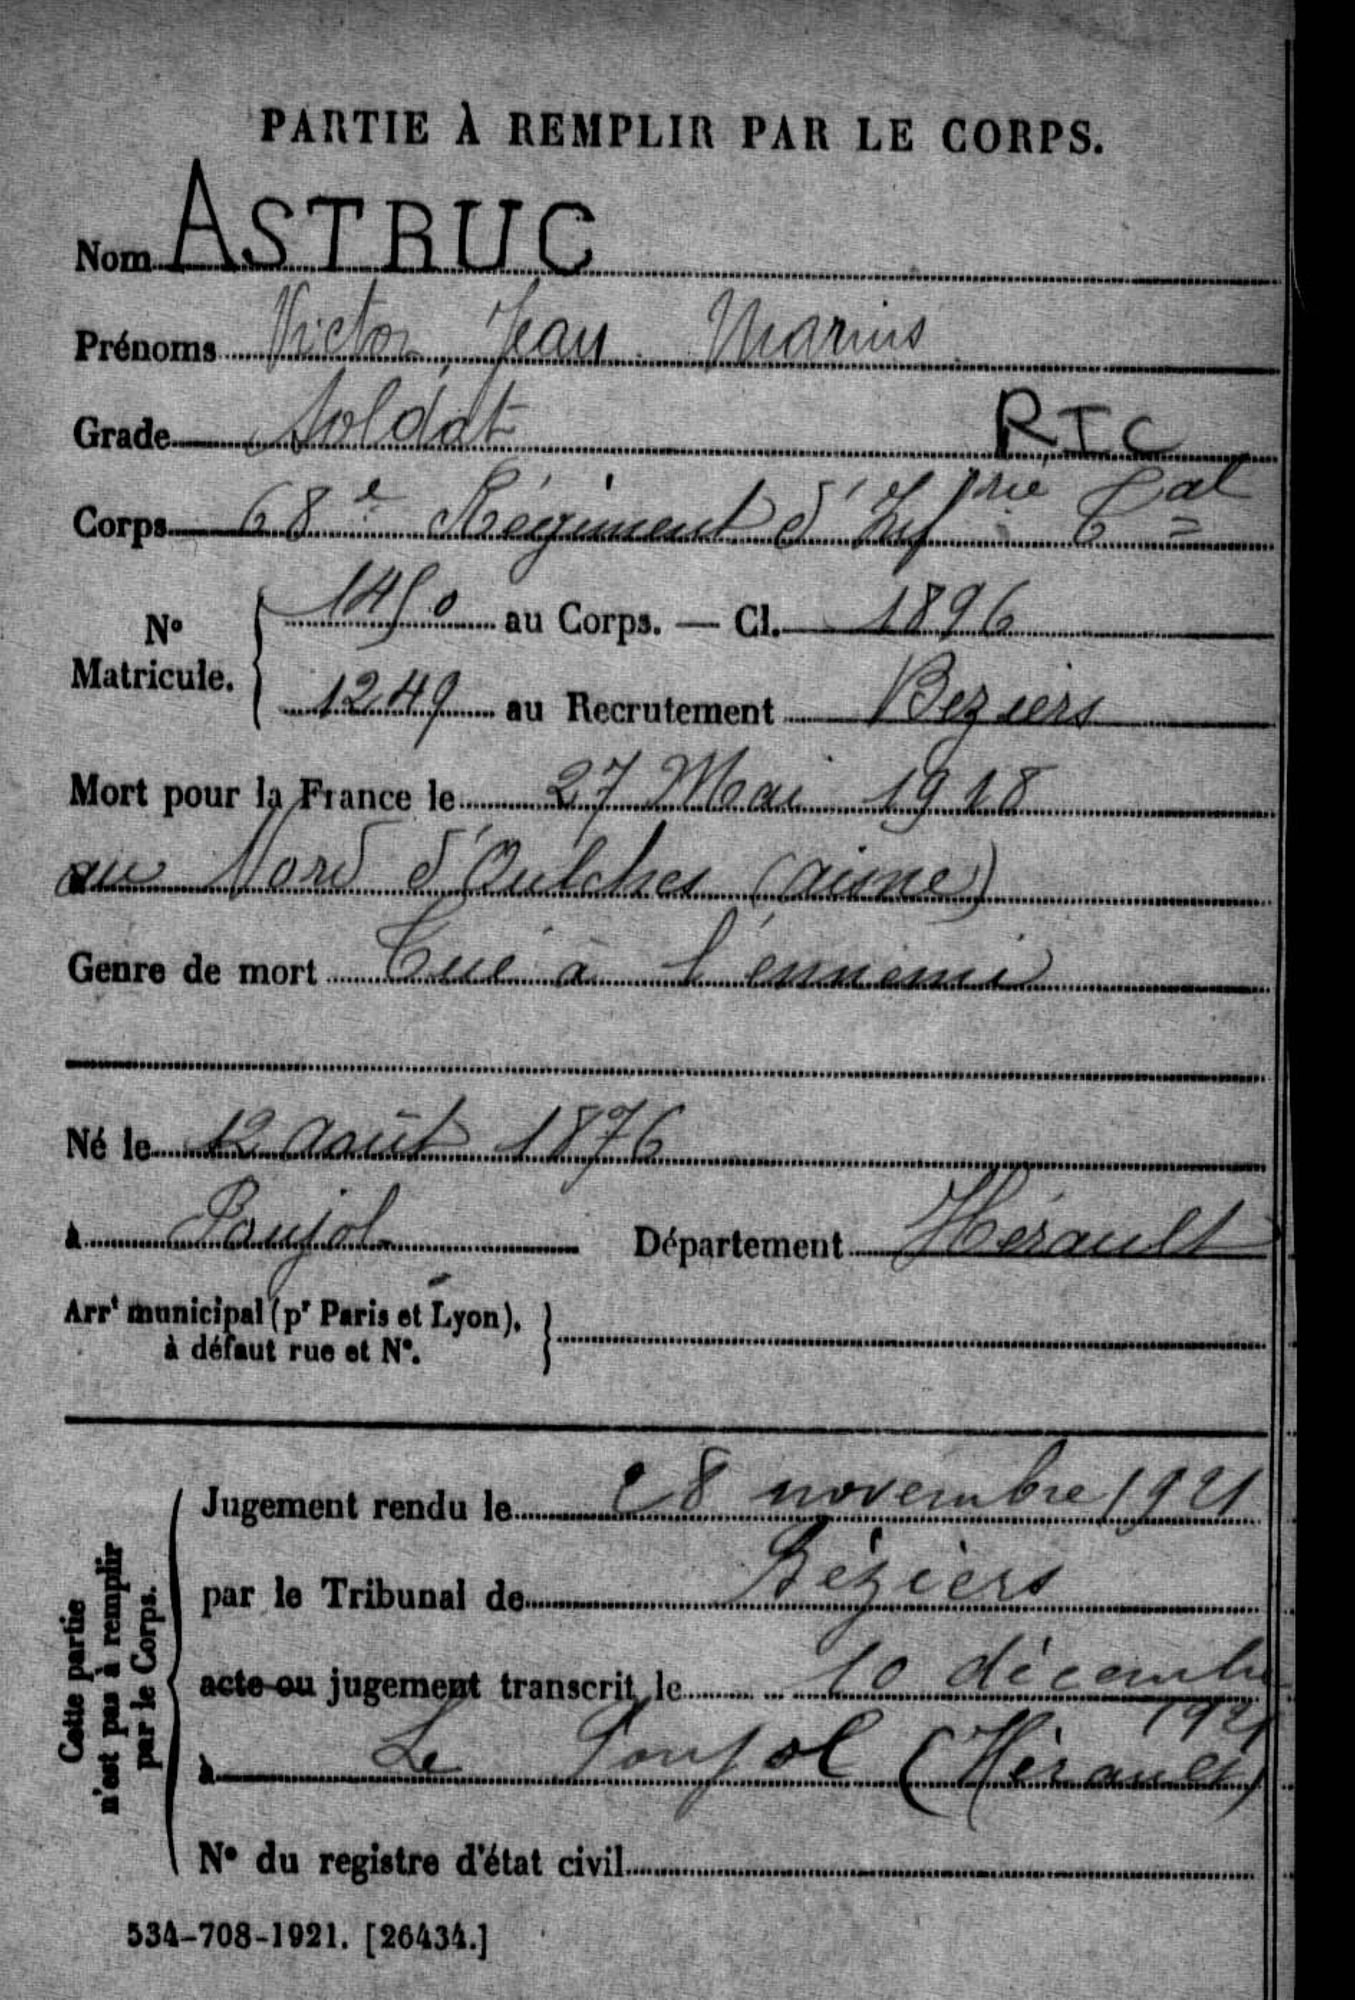 PARTIE À REMPLIR PAR LE CORPS.
Nom ASTRUC
Prénoms Victor, Jean Marius
Grade Soldat RIC
Corps 68e Régiment d'Infrie Cale
No Matricule. { 1450 au Corps. — Cl. 1896
1249 au Recrutement Beziers
Mort pour la France le 27 Mai 1918
au Nord d'Oulches (aisne)
Genre de mort Tué à l'ennemi
Né le 12 Août 1876
à Poujol Département Hérault
Arrt municipal (pr Paris et Lyon), }
à défaut rue et No.
Cette partie n'est pas à remplir par le Corps.
Jugement rendu le 28 novembre 1921
par le Tribunal de Béziers
acte ou jugement transcrit le 10 décembre
1921
à Le Poujol (Hérault)
No du registre d'état civil
534-708-1921. [26434.]